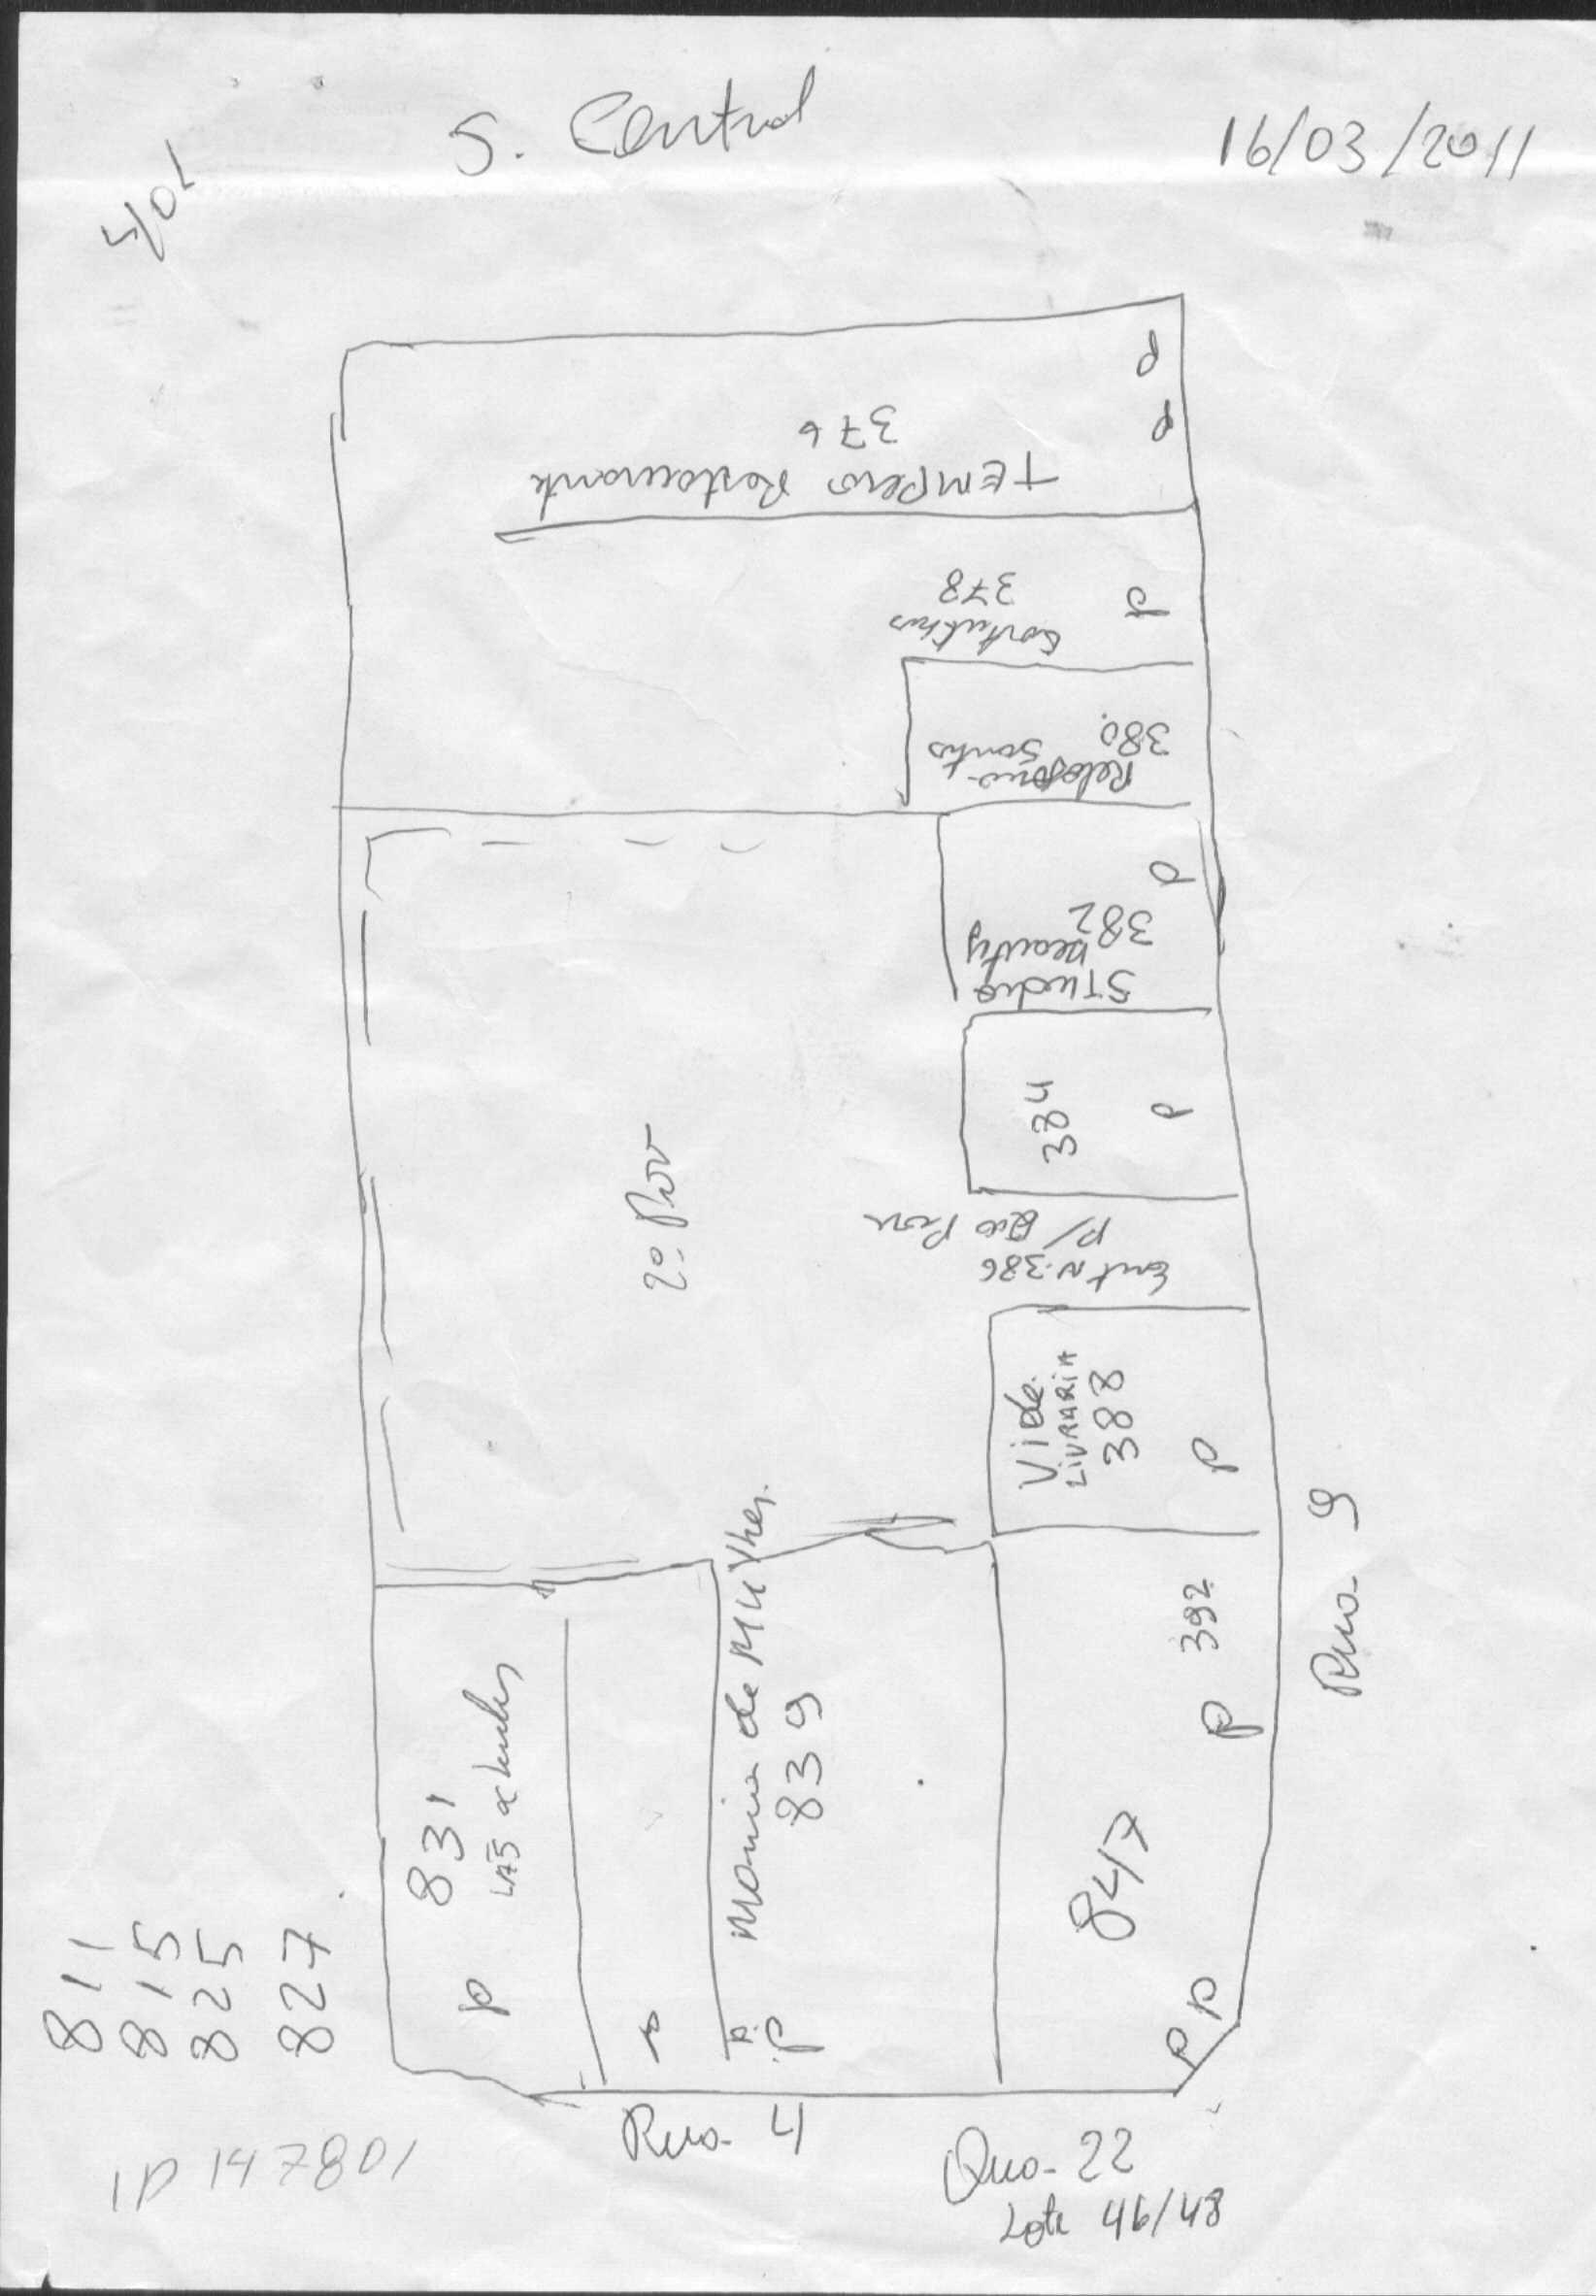 S. Central
16/03/2011
4/01
P
P
376
TEMPERO Restaurante
378
P
380
Relojoaria
Santos
P
382
STudio
beauty
384
P
2º Pav
Ent N. 386
P/
Pav
Vide
LIVRARIA
388
P
Rua 9
392
P
Mania de MULher
839
831
LAS
P
847
811
815
825
827
P
P
P
P
P
Rua 4
Qua- 22
Lote 46/48
ID 147801